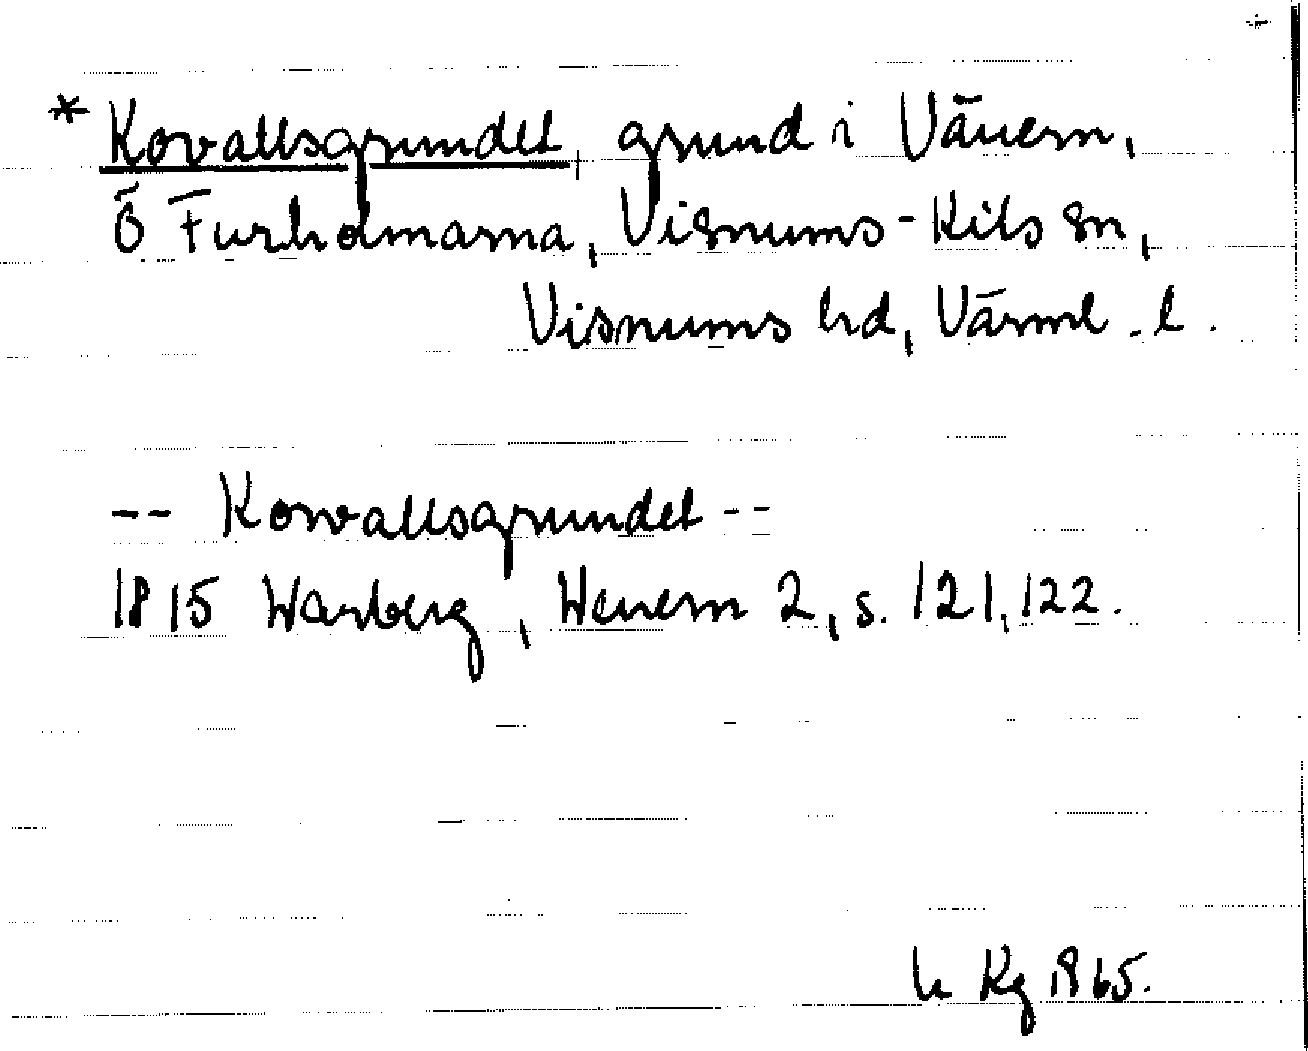 * Kovallsgrundet, grund i Vänern,
Ö Furholmarna, Visnums-Kils sn,
Visnums hd, Värml. l.
-- Kowallsgrundet --
1815 Warberg, Wenern 2, s. 121, 122.
Kg 1965.